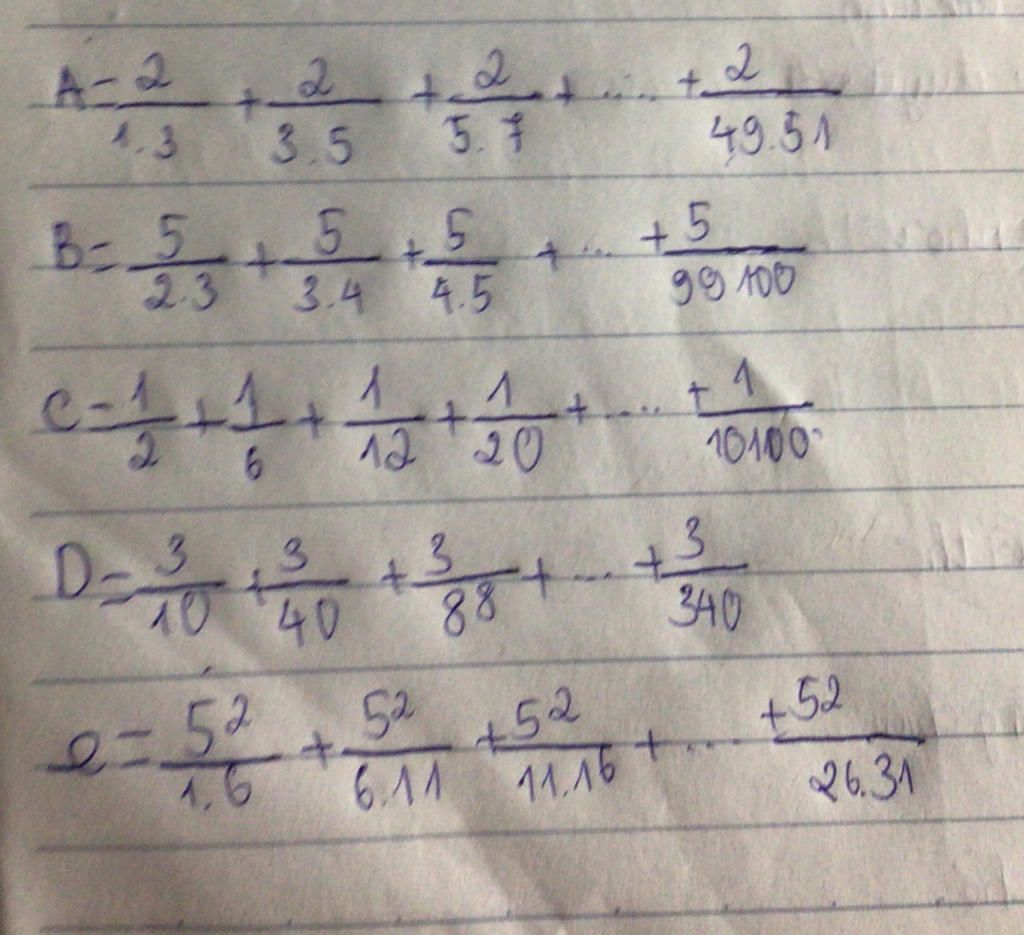 A = 2/1.3 + 2/3.5 + 2/5.7 + .... + 2/49.51
B = 5/2.3 + 5/3.4 + 5/4.5 + ... + 5/99 100
C = 1/2 + 1/6 + 1/12 + 1/20 + .... + 1/10100
D = 3/10 + 3/40 + 3/88 + ... + 3/340
e = 5²/1.6 + 5²/6.11 + 5²/11.16 + ... + 5²/26.31